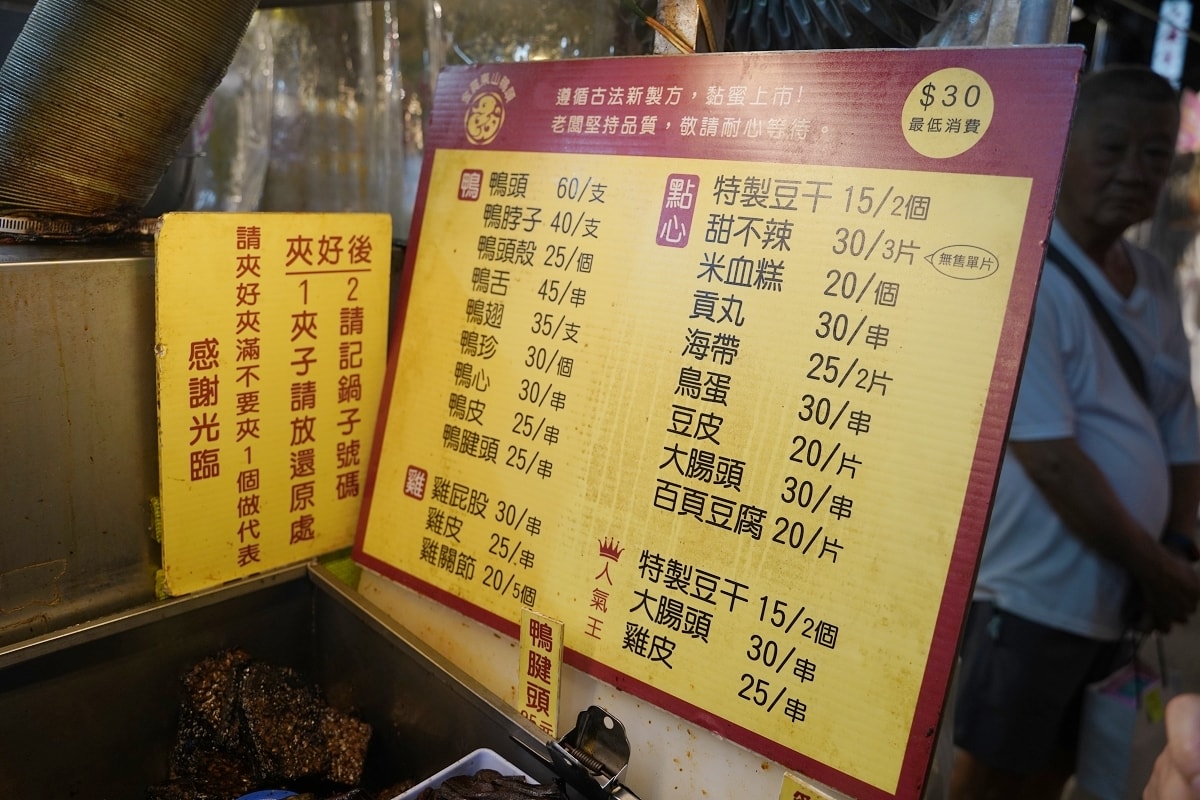 夾好後
1夾子請放還原處
2請記鍋子號碼
請夾好夾滿不要夾1個做代表
感謝光臨
遵循古法新製方,黏蜜上市!
老闆堅持品質,敬請耐心等待。
$30
最低消費
鴨
鴨頭 60/支
鴨脖子 40/支
鴨頭殼 25/個
鴨舌 45/串
鴨翅 35/支
鴨珍 30/個
鴨心 30/串
鴨皮 25/串
鴨腱頭 25/串
雞
雞屁股 30/串
雞皮 25/串
雞關節 20/5個
點心
特製豆干 15/2個
甜不辣 30/3片 無售單片
米血糕 20/個
貢丸 30/串
海帶 25/2片
鳥蛋 30/串
豆皮 20/片
大腸頭 30/串
百頁豆腐 20/片
人氣王
特製豆干 15/2個
大腸頭 30/串
雞皮 25/串
鴨腱頭